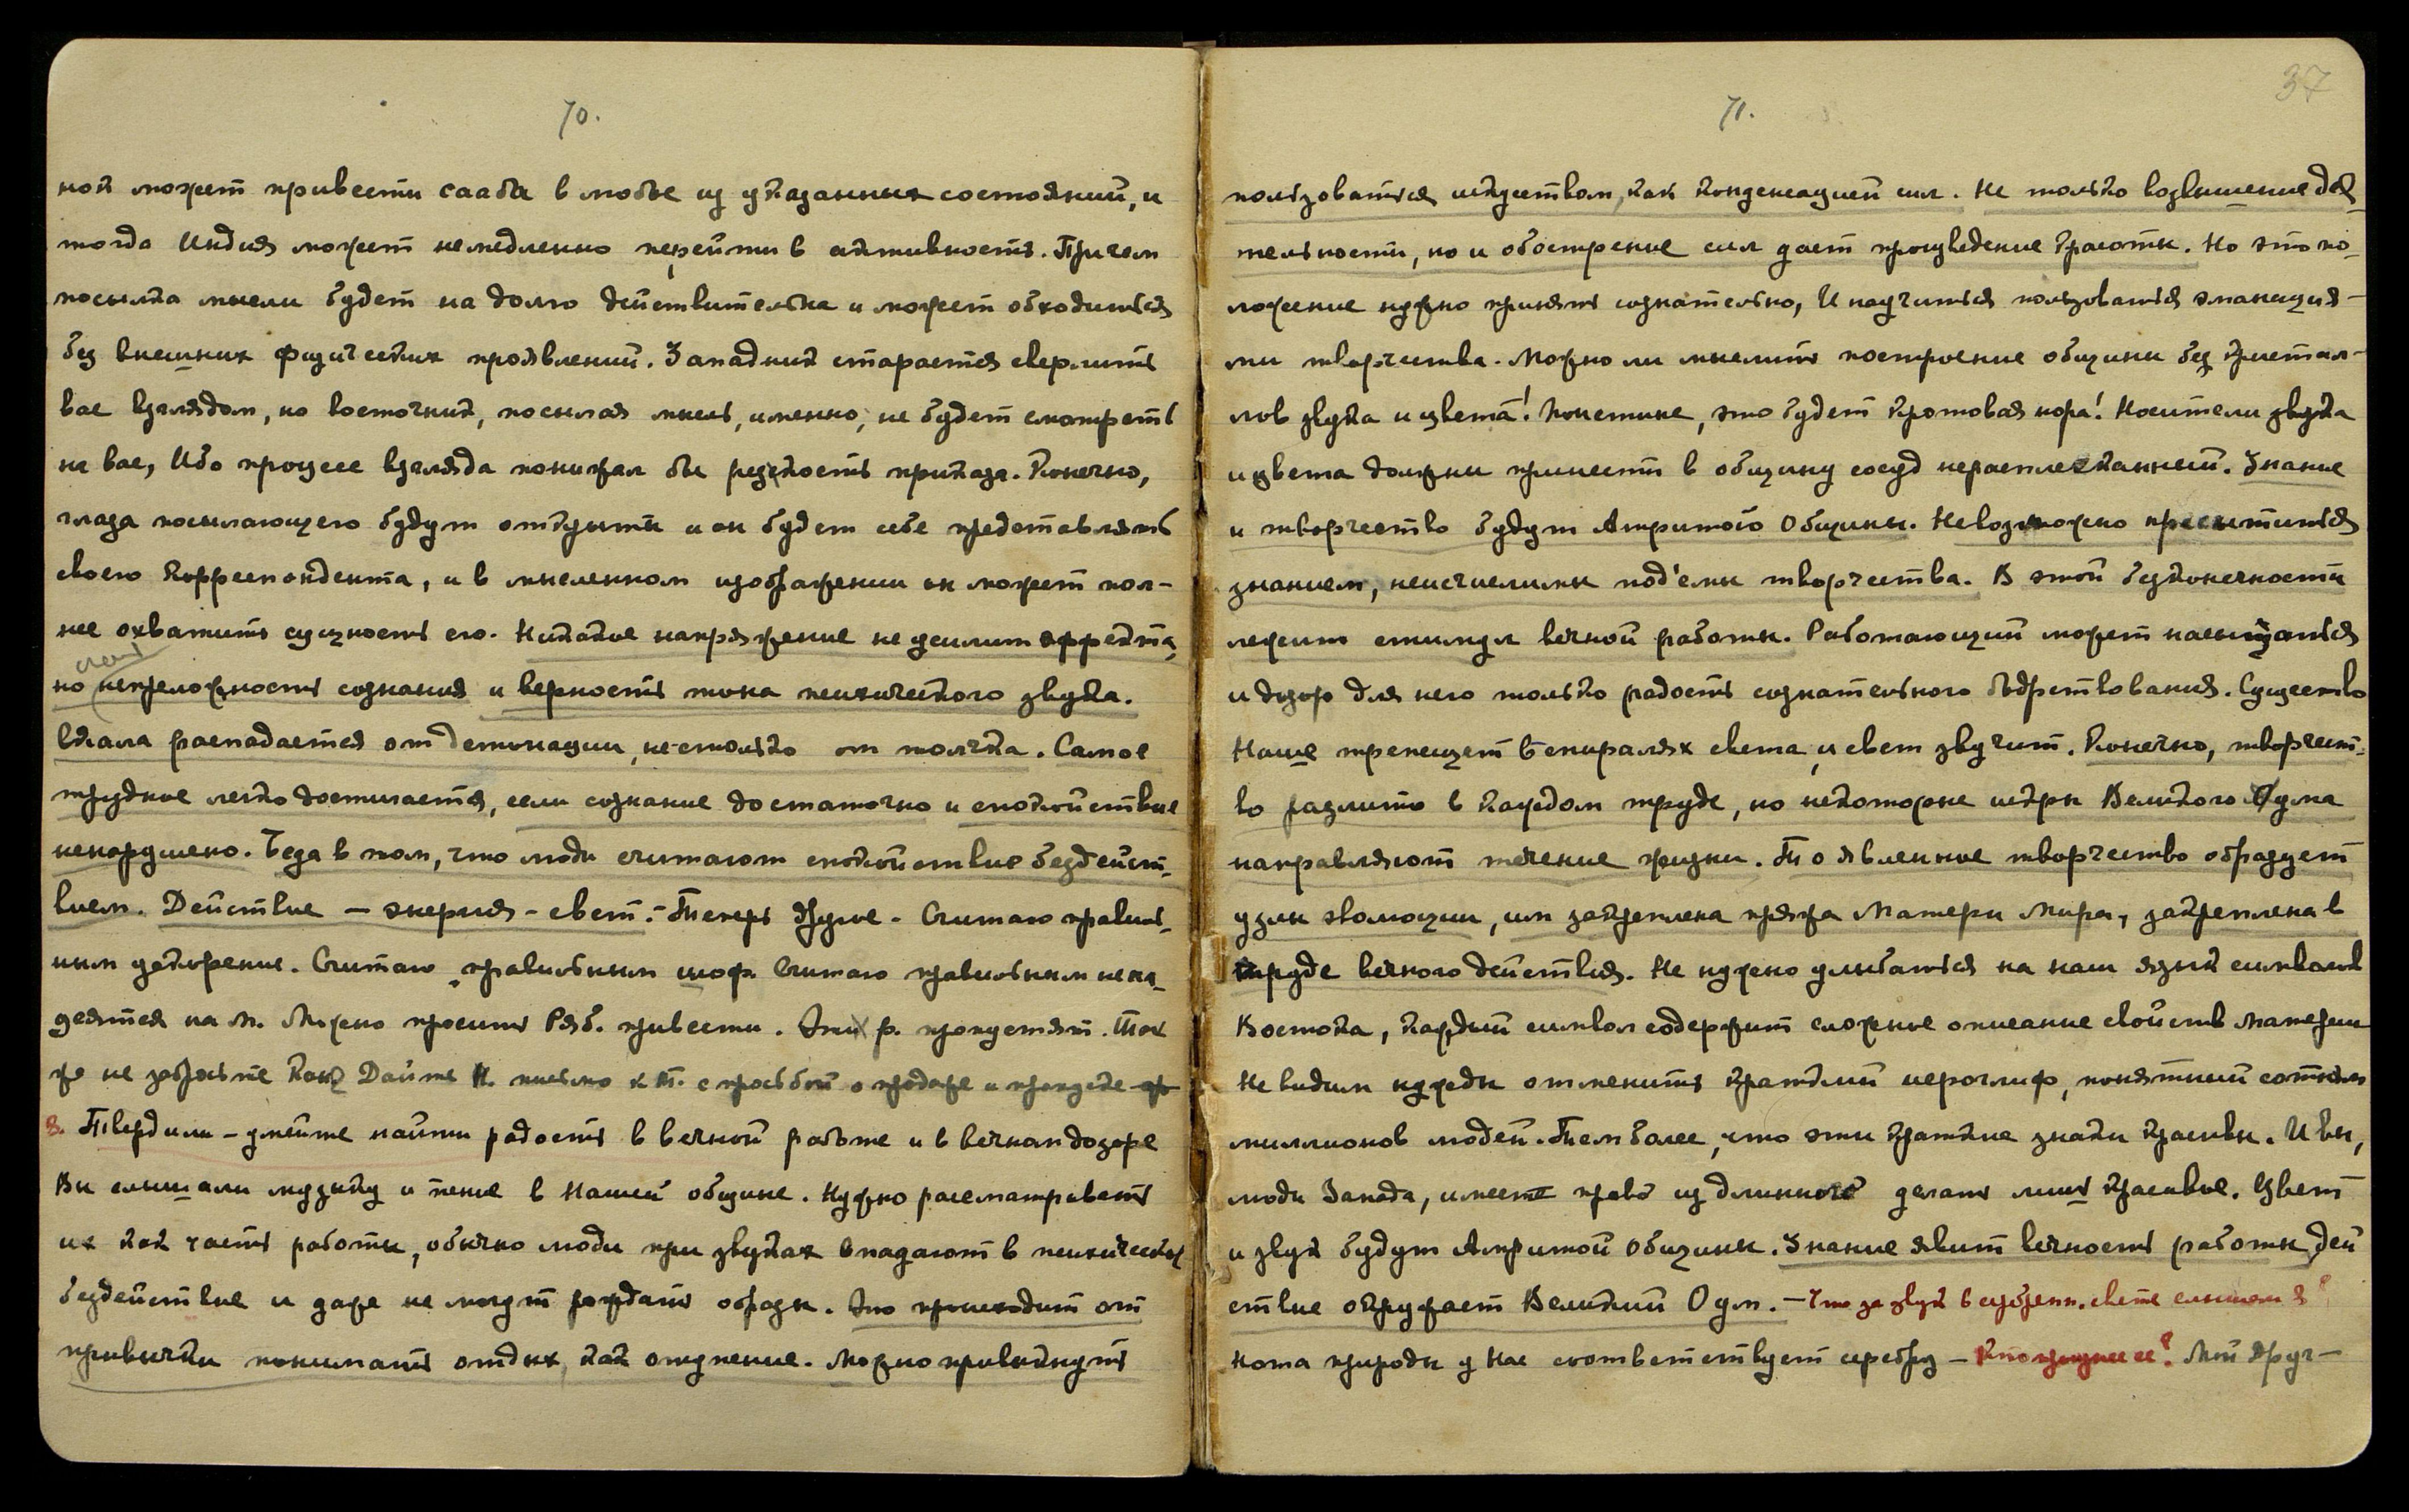 70.
ной может привести сааба в любое из указанных состояний, и
тогда Индия может немедленно перейти в активность. Причем
посылка мысли будет на долго действительна и может обходиться
без внешних физических проявлений. Западник старается сверлить
вас взглядом, но восточник, посылая мысль, именно, не будет смотреть
на вас, Ибо процесс взгляда понижал бы резкость приказа. Конечно,
глаза посылающего будут открыты и он будет себе представлять
своего корреспондента, и в мысленном изображении он может пол-
нее охватить сущность его. Никакое напряжение не усилит эффекта,
но непреложность сознания и верность тона психического звука.
Скала распадается от детонации, не столько от толчка. Самое
трудное легко достигается, если сознание достаточно и спокойствие
ненарушено. Беда в том, что люди считают спокойствие бездейст-
вием. Действие – энергия – свет. – Теперь другое – Считаю правиль-
ным ускорение. Считаю правильным шоф. Считаю правильным не на-
деятся на М. Можно просить Ряб. привести. Эти р. пропустят. Так
же не забросьте Дайте Н. письмо к Т. с просьбой о продаже и
я. Твердили – умейте найти радость в вечной работе и в вечном дозоре
Вы слышали музыку и пение в Нашей общине. Нужно рассматривать
их как часть работы, обычно люди при звуках впадают в психическое
бездействие и даже не могут рождать образы. Это происходит от
привычки понимать отдых, как отупение. Можно привыкнуть
37
71.
пользоваться искусством, как конденсацией сил. Не только возвышение дея-
тельности, но и обострение сил дает произведение красоты. Но это по-
ложение нужно принять сознательно, И научиться пользоваться эманация-
ми творчества. Можно ли мыслить построение общины без кристал-
лов звука и цвета! Поистине, это будет кротовая нора! Носители звука
и цвета должны принести в общину сосуд нерасплесканный. Знание
и творчество будут Амритого Общины. Невозможно пресытиться
знанием, неисчислимы под'емы творчества. В этой безконечности
лежит стимул вечной работы. Работающий может насыщаться
и дозор для него только радость сознательного бодрствования. Существо
Наше трепещет в спиралях света, и свет звучит. Конечно, творчест-
во разлито в каждом труде, но некоторые искры Великого Оума
направляют течение жизни. То явленное творчество образует
узлы эволюции, им закреплена пряжа Матери Мира, закреплена в
труде вечного действия. Не нужно улыбаться на наш язык символов
Востока, каждый символ содержит сложное описание свойств материи
Не видим нужды отменить краткий иероглиф, понятный сотням
миллионов людей. Тем более, что эти краткие знаки красивы. И вы,
люди Запада, имеете право из длинного делать лишь красивое. Цвет
и звук будут Амритой Общины. Знание явит вечность работы, дей
ствие окружает Великий Оум. – Что за звук в серебрян. свете слышала я?
Нота природы у Нас соответствует серебру – Мой друг –